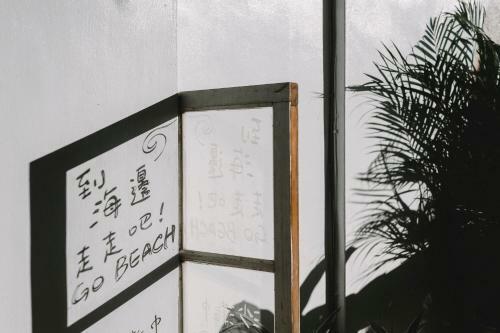 到海邊
走走吧!
GO BEACH
中